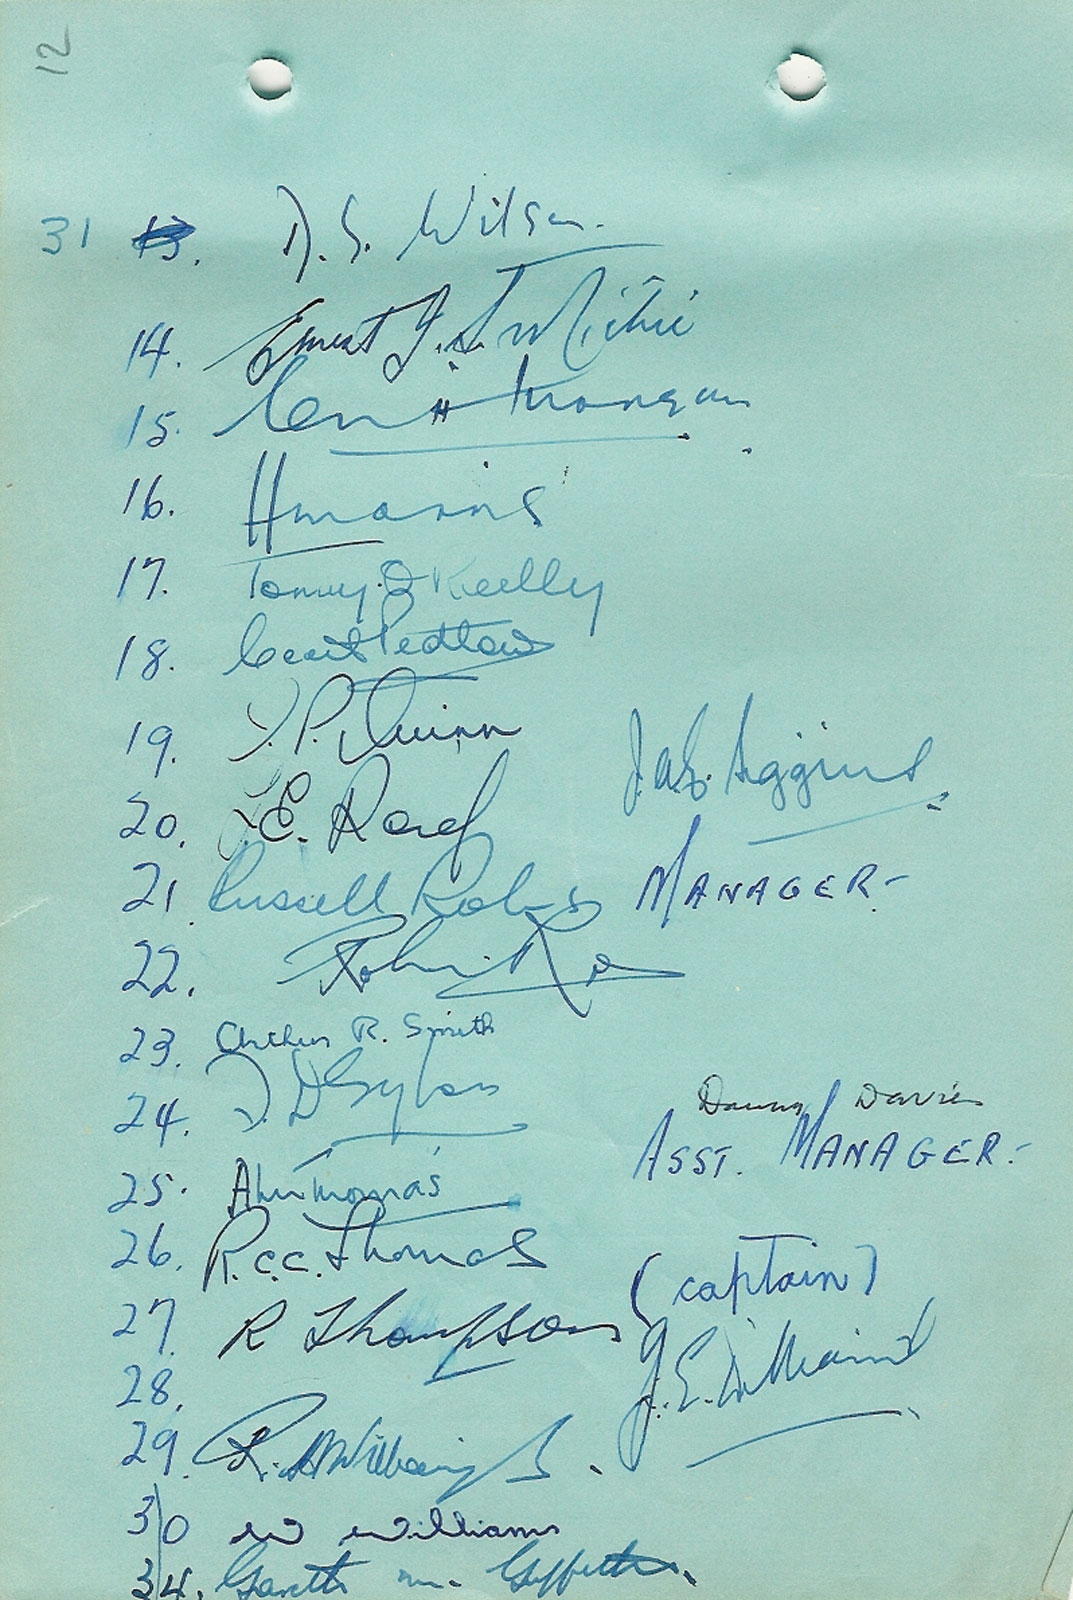 12
31 13. D. S. Wilson.
14. Ernest J. S. Michie
15. Morgan
16. H Morris
17. Tommy. O Reilly
18. Cecil Pedlow
19. J. P. Quinn
J. A. E. Siggins
20. T. E. Reid
21. Russell Robins
MANAGER-
22. Robin Roe
23. Arthur R. Smith
24.
Danny Davies
ASST. MANAGER.-
25.
26. R. C. C. Thomas
(captain)
27. R Thompson
28.
J. E. Williams
29. R. H. Williams.
30 W Williams
34. Gareth m. Griffiths.